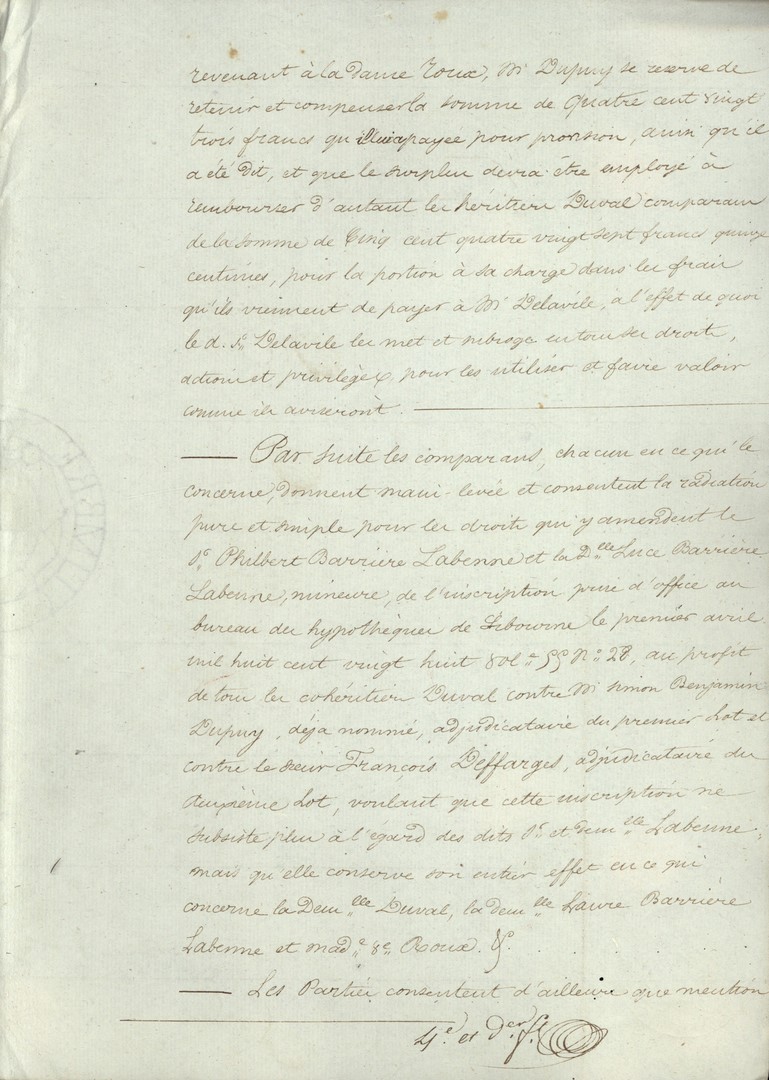 revenant à la Dame Roux, Mr Dupuy se reserve de
retenir et compenser la somme de quatre cent vingt
trois francs qu'il lui a payée pour provision, ainsi qu'il
a été dit, et que le surplus devra être employé à
rembourser d'autant les héritiers Duval comparans
de la somme de Cinq cent quatre vingt sept francs quinze
centimes, pour la portion à sa charge dans les frais
qu'ils viennent de payer à Mr Delavile, à l'effet de quoi
le d. Sr Delavile les met et subroge en tous ses droits,
actions et privilèges, pour les utiliser et faire valoir
comme ils aviseront.
Par suite les comparans, chacun en ce qui le
concerne, donnent main-levée et consentent la radiation
pure et simple pour les droits qui y amendent le
Sr Philbert Barrière Labenne et la Dlle Luce Barrière
Labenne, mineure, de l'inscription prise d'office au
bureau des hypothèques de Libourne le premier avril
mil huit cent vingt huit vol. 55 No 28, au profit
de tous les cohéritiers Duval contre Mr Simon Benjamin
Dupuy, déja nommé, adjudicataire du premier Lot et
contre le sieur François Deffarges, adjudicataire du
deuxième Lot, voulant que cette inscription ne
subsiste plus à l'égard des dits Sr et demlle Labenne,
mais qu'elle conserve son entier effet en ce qui
concerne la Demlle Duval, la demlle Laure Barrière
Labenne et made ve Roux.
Les Parties consentent d'ailleurs que mention
4e et der ft